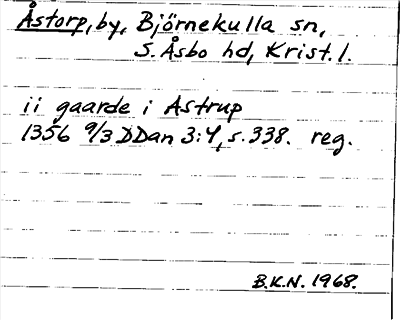 Åstorp, by, Björnekulla sn,
S. Åsbo hd, Krist. l.
ii gaarde i Astrup
1356 9/3 DDan 3:4, s. 338. reg.
B.K.N. 1968.